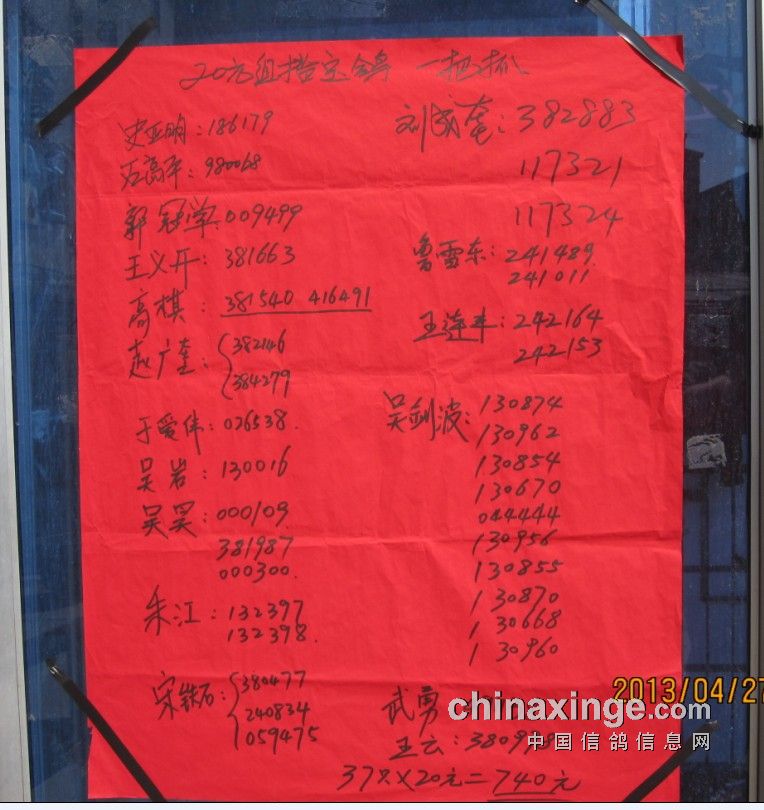 20元组指定鸽 一把抓
史亚明：186179
万高平：980068
郭冠学：009499
王义开：381663
高棋：381540 416491
赵广奎：382146
384279
于爱伟：026538.
吴岩：130016
吴昊：000109
381987
000300.
朱江：132397
132398.
宋铁石：380477
240834
059475
刘成奎：382883
117321
117324
鲁雪东：241489.
241011
王连丰：242164
242153
吴剑波：130874
130962
130854
130670
044444
130956
130855
130870
130668
130960
武勇
王云：3809
37只×20元=740元
2013/04/27
chinaxinge.com
中国信鸽信息网